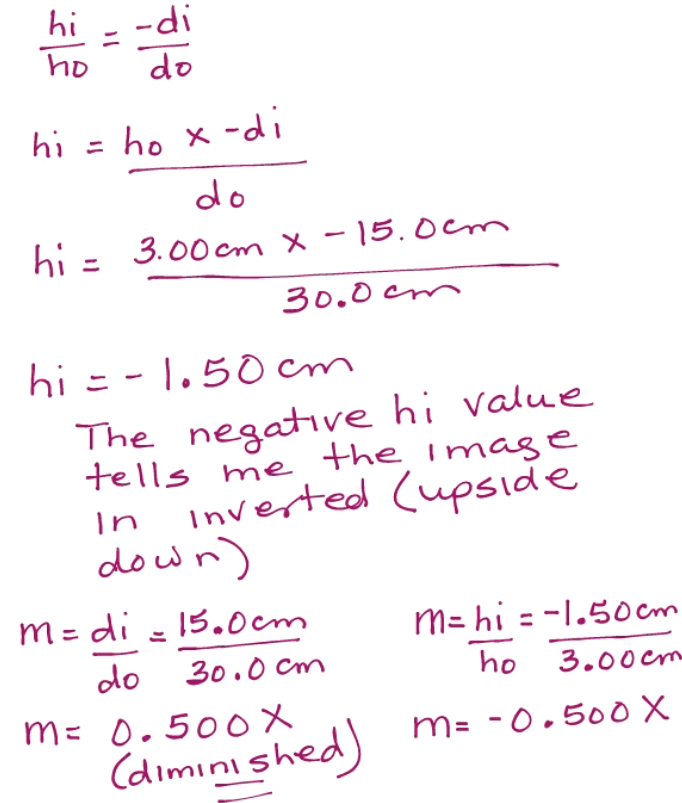 hi = -di
ho do
hi = ho x -di
do
hi = 3.00cm x -15.0cm
30.0 cm
hi = -1.50 cm
The negative hi value
tells me the image
in inverted (upside
down)
m = di = 15.0cm
do 30.0 cm
m = 0.500 X
(diminished)
m = hi = -1.50cm
ho 3.00cm
m = -0.500 X